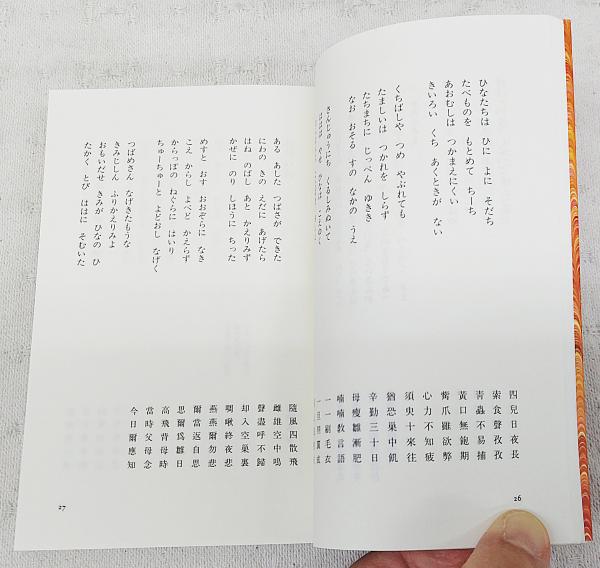 ひなたちは ひに よに そだち
たべものを もとめて ちーち
あおむしは つかまえにくい
きいろい くち あくときが ない
くちばしや つめ やぶれても
たましいは つかれを しらず
たちまちに じっぺん ゆきき
なお おそる すの なかの うえ
さんじゅうにち くるしみぬいて
ははは やせ ひなは こえゆく
四兒日夜長
索食聲孜孜
青蟲不易捕
黃口無飽期
觜爪雖欲弊
心力不知疲
須臾十來往
猶恐巢中飢
辛勤三十日
母瘦雛漸肥
喃喃敎言語
一一刷毛衣
一旦羽翼成
26
ある あした つばさが できた
にわの きの えだに あげたら
はね のばし あと かえりみず
かぜに のり しほうに ちった
めすと おす おおぞらに なき
こえ からし よべど かえらず
からっぽの ねぐらに はいり
ちゅーちゅーと よどおし なげく
つばめさん なげきたもうな
きみじしん ふりかえりみよ
おもいだせ きみが ひなの ひ
たかく とび ははに そむいた
隨風四散飛
雌雄空中鳴
聲盡呼不歸
却入空巢裏
啁啾終夜悲
燕燕爾勿悲
爾當返自思
思爾爲雛日
高飛背母時
當時父母念
今日爾應知
27